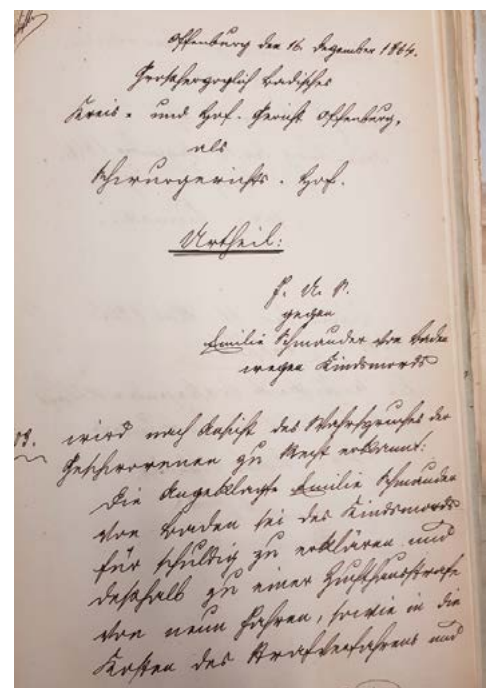 Offenburg den 16. Dezember 1864.
Großherzoglich badisches
Kreis- und Hof-Gericht Offenburg,
als
Schwurgerichts-Hof.
Urtheil:
J. U. S.
gegen
Emilie Schmauder von Baden
wegen Kindsmords
wird nach Ansicht des Wahrspruches der
Geschworenen zu Recht erkannt:
Die Angeklagte Emilie Schmauder
von Baden sei des Kindsmords
für schuldig zu erklären und
deßhalb zu einer Zuchthausstrafe
von neun Jahren, sowie in die
Kosten des Strafverfahrens und